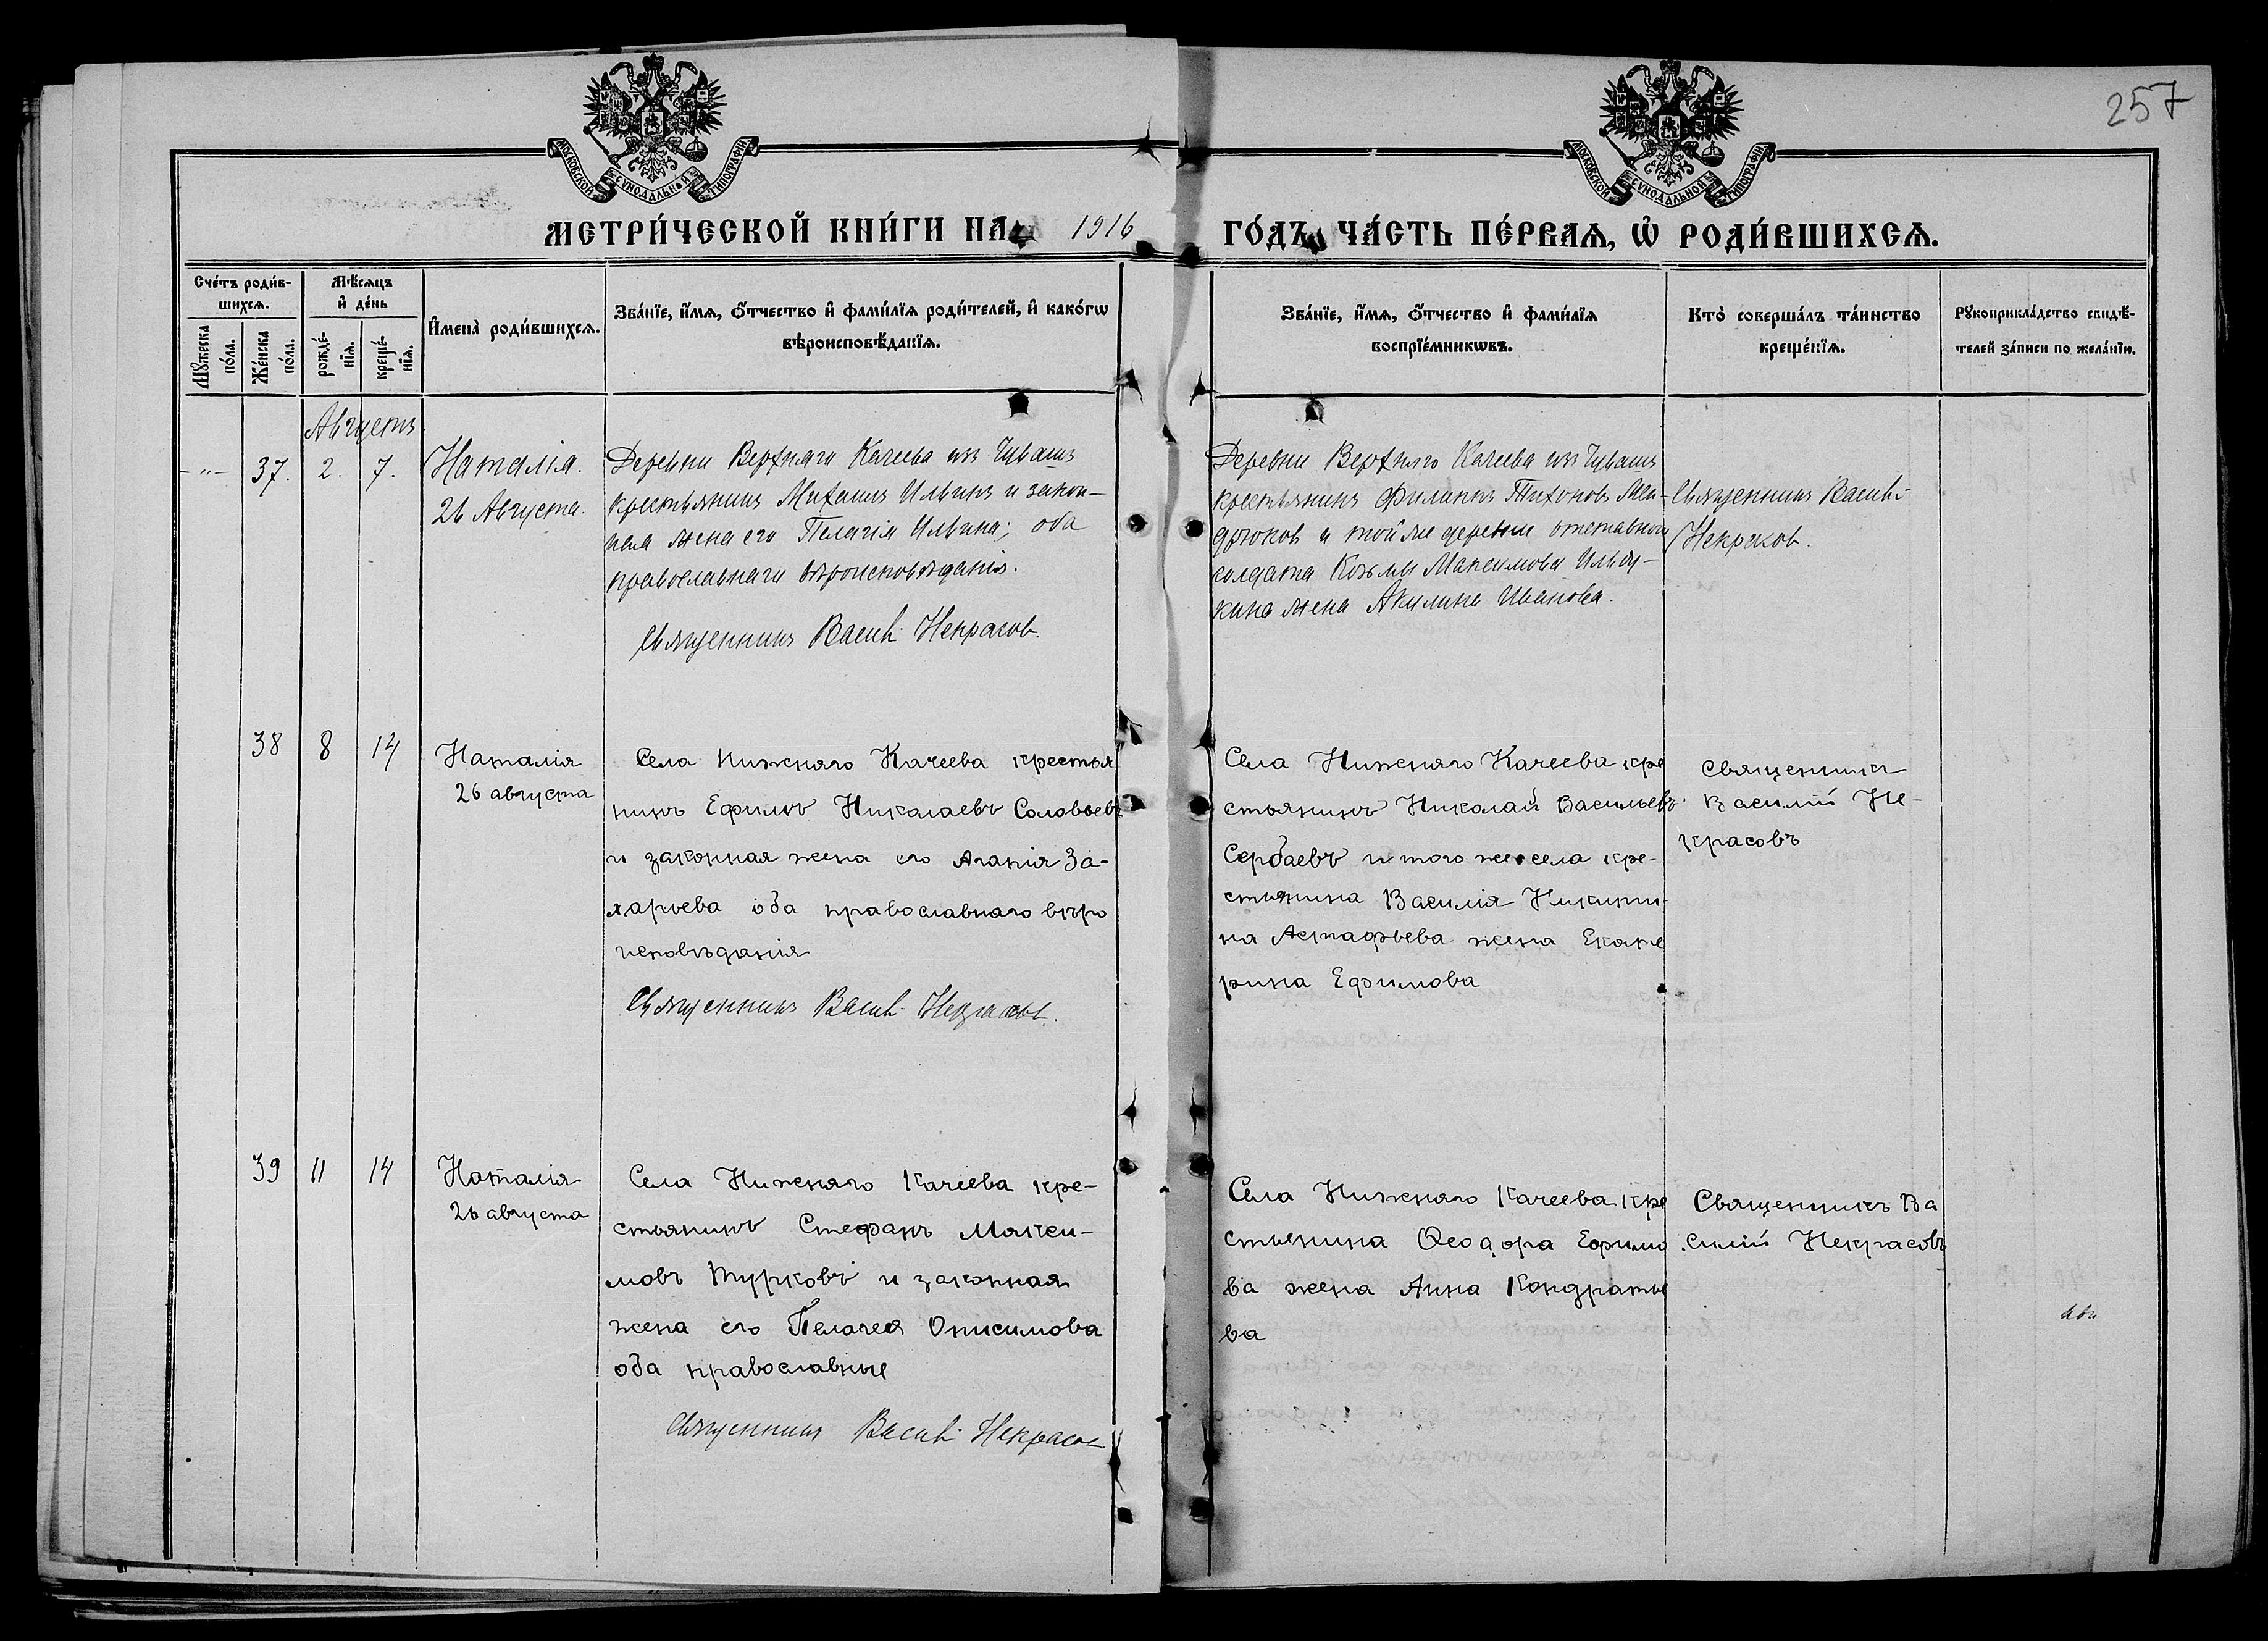 257
МОСКОВСКОЙ СѴНОДАЛЬНОЙ ТИПОГРАФІИ
МОСКОВСКОЙ СѴНОДАЛЬНОЙ ТИПОГРАФІИ
МЕТРИ́ЧЕСКОЙ КНИ́ГИ НА 1916 ГО́ДЪ, ЧА́СТЬ ПЕ́РВАѦ, Ѽ РОДИ́ВШИХСѦ.
Сче́тъ роди́в-
шихсѧ.
Мꙋ́жеска по́ла.
Же́нска по́ла.
Мѣ́сѧцъ
и҆ де́нь
рожде́-
нїѧ.
креще́-
нїѧ.
И҆мена̀ роди́вшихсѧ.
Зва́нїе, и҆́мѧ, ѻ҆́тчество и҆ фами́лїѧ роди́телей, и҆ како́гѡ
вѣроисповѣ́данїѧ.
Зва́нїе, и҆́мѧ, ѻ҆́тчество и҆ фами́лїѧ
воспрїе́мникѡвъ.
Кто̀ соверша́лъ та́инство
креще́нїѧ.
Рꙋкоприкла́дство свидѣ́-
телей за́писи по жела́нїю.
Августъ
-"- 37. 2. 7.
Наталія.
26 Августа.
Деревни Верхняго Качеева изъ Чувашъ
крестьянинъ Михаилъ Ильинъ и закон-
ная жена его Пелагія Ильина; оба
православнаго вѣроисповѣданія.
Священникъ Васил. Некрасов.
Деревни Верхняго Качеева изъ Чувашъ
крестьянинъ Филиппъ Тихоновъ Мен-
дюковъ и той же деревни отставного
солдата Козьмы Максимова Ильдю-
кина жена Акилина Иванова.
Священникъ Васил.
Некрасов.
38 8 14
Наталія
26 августа
Села Нижняго Качеева крестья
нинъ Ефимъ Николаевъ Соловьевъ
и законная жена его Агапія За-
харьева оба православнаго вѣро
исповѣданія
Священникъ Васил. Некрасов.
Села Нижняго Качеева кре
стьянинъ Николай Васильевъ
Сербаевъ и того же села кре-
стьянина Василія Никити-
на Астафьева жена Екате
рина Ефимова
Священникъ
Василій Не-
красовъ
39 11 14
Наталія
26 августа
Села Нижняго Качеева кре-
стьянинъ Стефанъ Макси-
мовъ Турковъ и законная
жена его Пелагея Онисимова
оба православные
Священникъ Васил. Некрасов
Села Нижняго Качеева кре
стьянина Ѳеодора Ефимо
ва жена Анна Кондратье
ва
Священникъ Ва
силій Некрасовъ